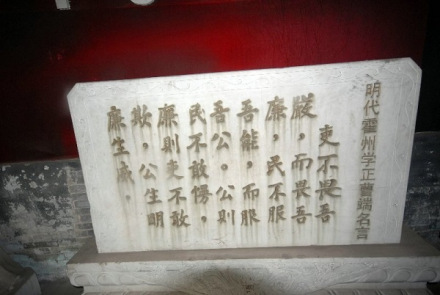 明代霍州学正曹端名言
吏不畏吾
嚴，而畏吾
廉，民不服
吾能，而服
吾公。公則
民不敢慢，
廉則吏不敢
欺，公生明
廉生威。